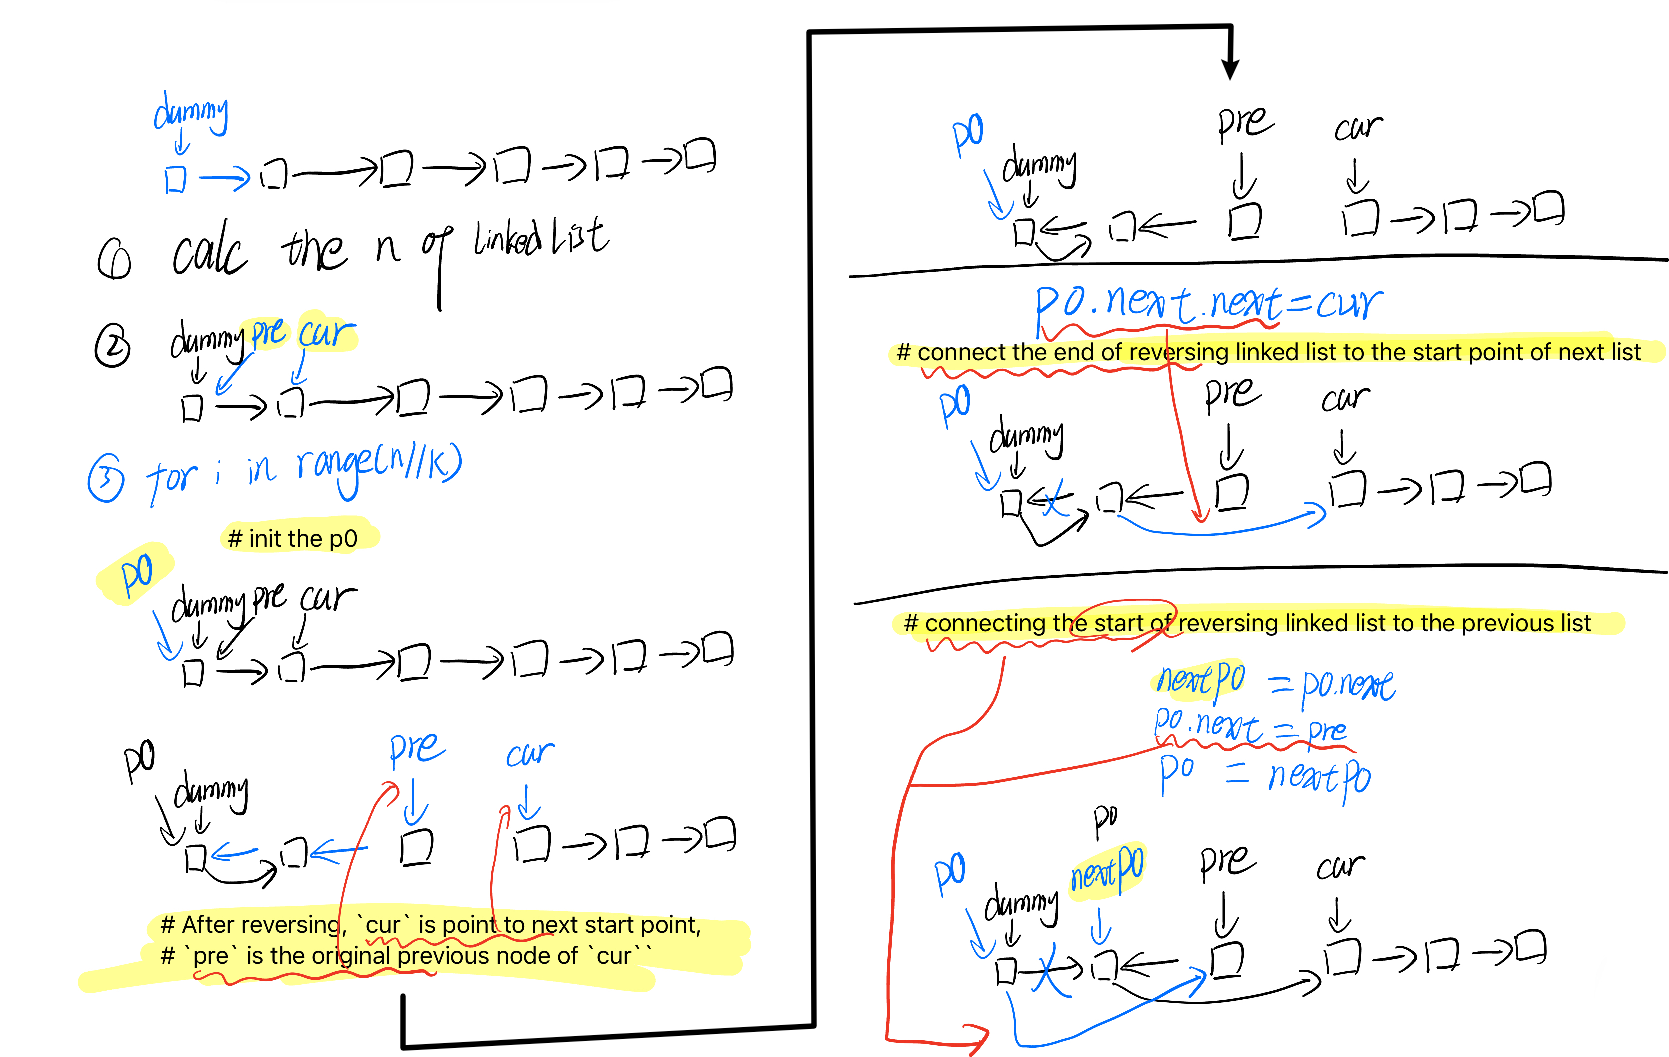 dummy
① calc the n of linked list
② dummy pre cur
③ for i in range(n//k)
# init the p0
p0
dummy pre cur
p0 pre cur
dummy
# After reversing, `cur` is point to next start point,
# `pre` is the original previous node of `cur``
p0 pre cur
dummy
p0.next.next=cur
# connect the end of reversing linked list to the start point of next list
p0 pre cur
dummy
# connecting the start of reversing linked list to the previous list
nextp0 = p0.next
p0.next = pre
p0 = nextp0
p0
p0 nextp0 pre cur
dummy